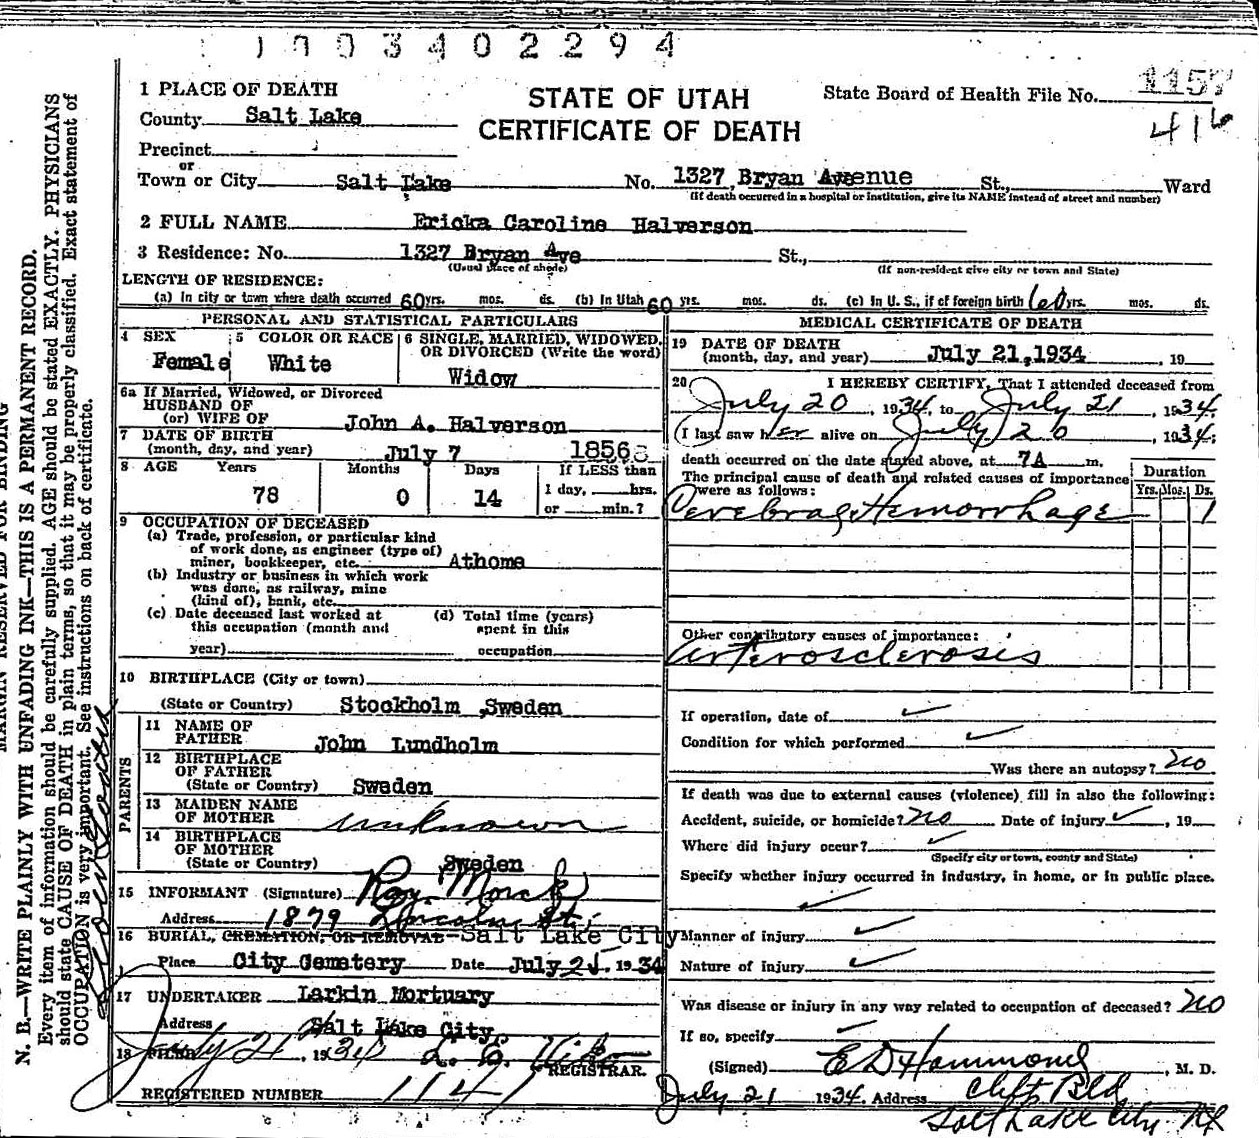 1003402294
STATE OF UTAH
CERTIFICATE OF DEATH
State Board of Health File No. 1157
416
1 PLACE OF DEATH
County Salt Lake
Precinct
or
Town or City Salt Lake No. 1327 Bryan Avenue St., Ward
(If death occurred in a hospital or institution, give its NAME instead of street and number)
2 FULL NAME Ericka Caroline Halverson
3 Residence: No. 1327 Bryan Ave St.,
(Usual place of abode) (If non-resident give city or town and State)
LENGTH OF RESIDENCE:
(a) In city or town where death occurred 60 yrs. mos. ds. (b) In Utah 60 yrs. mos. ds. (c) In U. S., if of foreign birth 60 yrs. mos. ds.
PERSONAL AND STATISTICAL PARTICULARS
4 SEX
Female
5 COLOR OR RACE
White
6 SINGLE, MARRIED, WIDOWED,
OR DIVORCED (Write the word)
Widow
6a If Married, Widowed, or Divorced
HUSBAND OF
(or) WIFE OF John A. Halverson
7 DATE OF BIRTH
(month, day, and year) July 7 1856
8 AGE Years Months Days If LESS than
78 0 14 1 day, hrs.
or min.?
9 OCCUPATION OF DECEASED
(a) Trade, profession, or particular kind
of work done, as engineer (type of)
miner, bookkeeper, etc. Athome
(b) Industry or business in which work
was done, as railway, mine
(kind of), bank, etc.
(c) Date deceased last worked at (d) Total time (years)
this occupation (month and spent in this
year) occupation
10 BIRTHPLACE (City or town)
(State or Country) Stockholm ,Sweden
PARENTS
11 NAME OF
FATHER John Lundholm
12 BIRTHPLACE
OF FATHER
(State or Country) Sweden
13 MAIDEN NAME
OF MOTHER unknown
14 BIRTHPLACE
OF MOTHER
(State or Country) Sweden
15 INFORMANT (Signature) Roy Morck
Address 1879 Lincoln St.
16 BURIAL, CREMATION, OR REMOVAL Salt Lake City
Place City Cemetery Date July 25. 1934
17 UNDERTAKER Larkin Mortuary
Address Salt Lake City
18 FILED July 21, 1934
REGISTRAR.
REGISTERED NUMBER 1147
MEDICAL CERTIFICATE OF DEATH
19 DATE OF DEATH
(month, day, and year) July 21,1934 , 19
20 I HEREBY CERTIFY, That I attended deceased from
July 20 , 1934, to July 21 , 1934.
I last saw her alive on July 20 , 1934;
death occurred on the date stated above, at 7A m.
The principal cause of death and related causes of importance
were as follows:
Duration
Yrs. Mos. Ds.
Cerebral Hemorrhage 1
Other contributory causes of importance:
Arterosclerosis
If operation, date of ✓
Condition for which performed ✓
Was there an autopsy? no
If death was due to external causes (violence) fill in also the following:
Accident, suicide, or homicide? no Date of injury ✓ , 19
Where did injury occur? ✓
(Specify city or town, county and State)
Specify whether injury occurred in industry, in home, or in public place.
✓
Manner of injury ✓
Nature of injury ✓
Was disease or injury in any way related to occupation of deceased? no
If so, specify ✓
(Signed) E D Hammond , M. D.
July 21 1934. Address Clift Bld
Salt Lake City
MARGIN RESERVED FOR BINDING
N. B.—WRITE PLAINLY WITH UNFADING INK—THIS IS A PERMANENT RECORD.
Every item of information should be carefully supplied. AGE should be stated EXACTLY. PHYSICIANS
should state CAUSE OF DEATH in plain terms, so that it may be properly classified. Exact statement of
OCCUPATION is very important. See instructions on back of certificate.